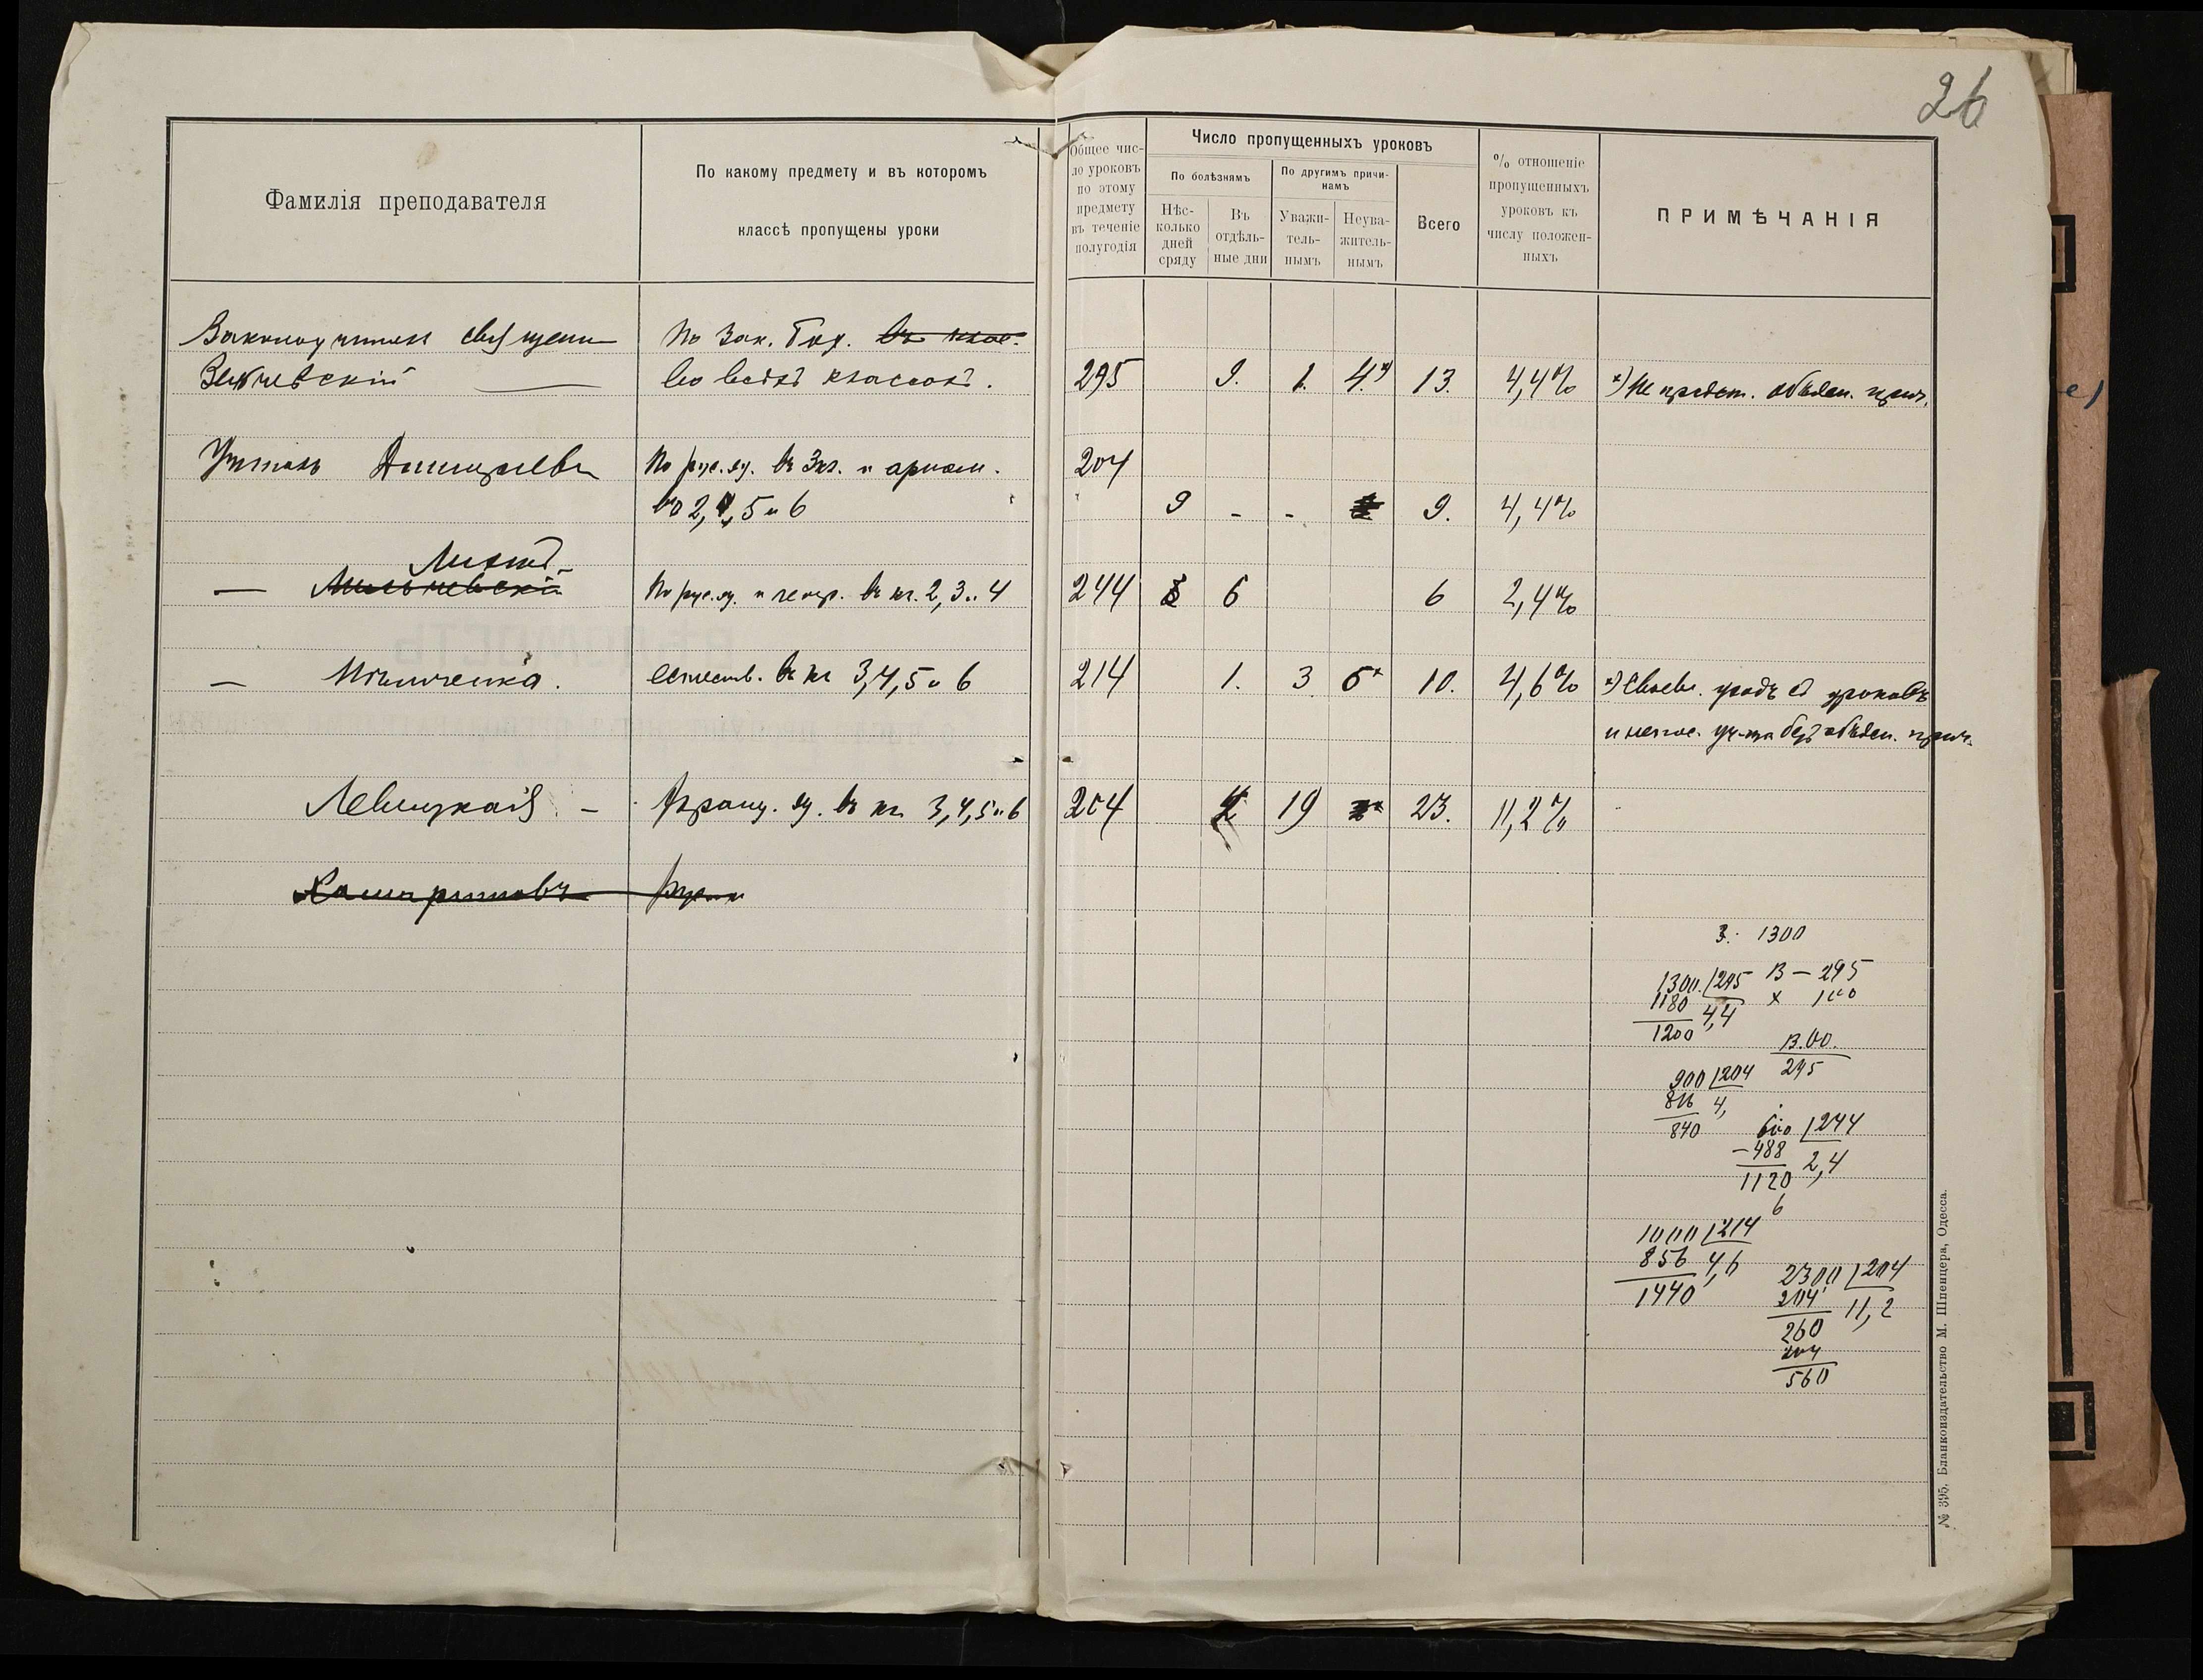 26
Фамилія преподавателя
По какому предмету и въ которомъ
классѣ пропущены уроки
Общее чис-
ло уроковъ
по этому
предмету
въ теченіе
полугодія
Число пропущенныхъ уроковъ
По болѣзнямъ
По другимъ причи-
намъ
Нѣс-
колько
дней
сряду
Въ
отдѣль-
ные дни
Уважи-
тель-
нымъ
Неува-
житель-
нымъ
Всего
% отношеніе
пропущенныхъ
уроковъ къ
числу положен-
ныхъ
ПРИМѢЧАНІЯ
Законоучитель священ
По Зак. Бож.
во всѣхъ классахъ. 295 9. 1. 4.*) 13. 4,4% *) Не предст. объясн. прич.
Учитель По рус. яз. въ 3 кл. и ариѳм. 204
во 2, 4, 5 и 6 9 - - 9. 4,4%
— По рус. яз. и геогр. въ кл. 2, 3 и 4 244 6 6 2,4%
— естеств. въ кл 3, 4, 5 и 6 214 1. 3 6* 10. 4,6% *) съ уроковъ
и безъ объясн. прич.
Левицкая — Франц. яз. въ кл. 3, 4, 5 и 6 204 4 19 23. 11,2%
3. 1300
1300 295 13 — 295
1180 4,4 x 100
1200
13.00.
295
900 204
816 4,
840
600 244
-488 2,4
1120
6
1000 214
856 4,6
1440
2300 204
204 11,2
260
204
560
№ 395. Бланкоиздательство М. Шпенцера, Одесса.